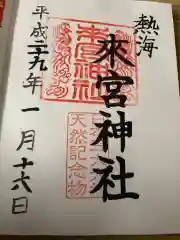 熱海
來宮神社
來宮神社
天然記念物
平成二十九年一月十六日